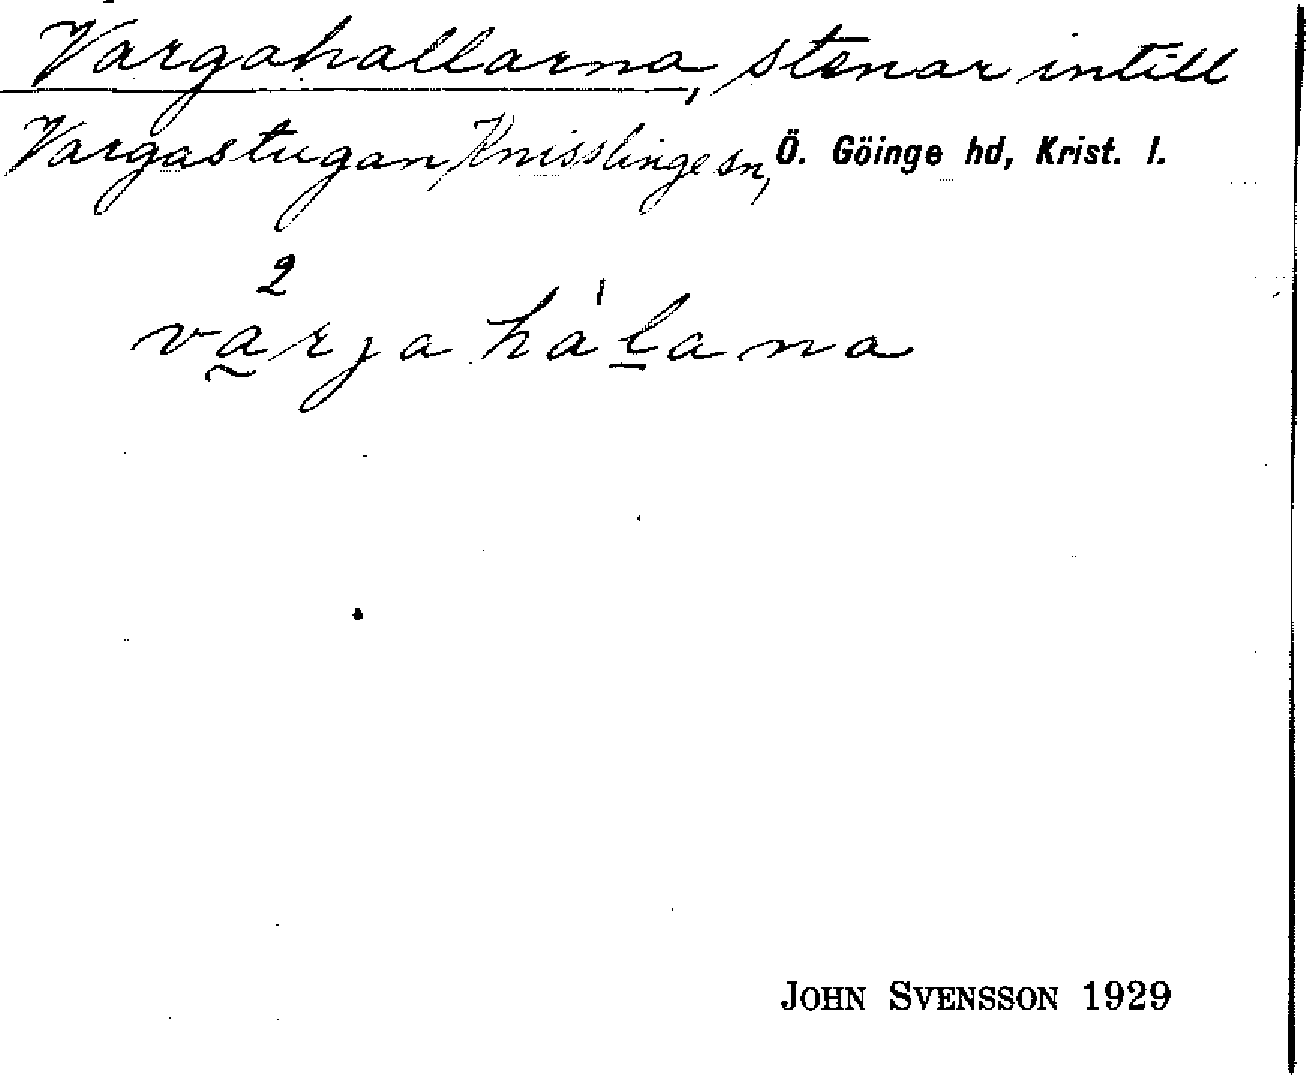 Vargahallarna, stenar intill
Vargastugan, Knisslinge sn, Ö. Göinge hd, Krist. l.
2
varja hálana
JOHN SVENSSON 1929